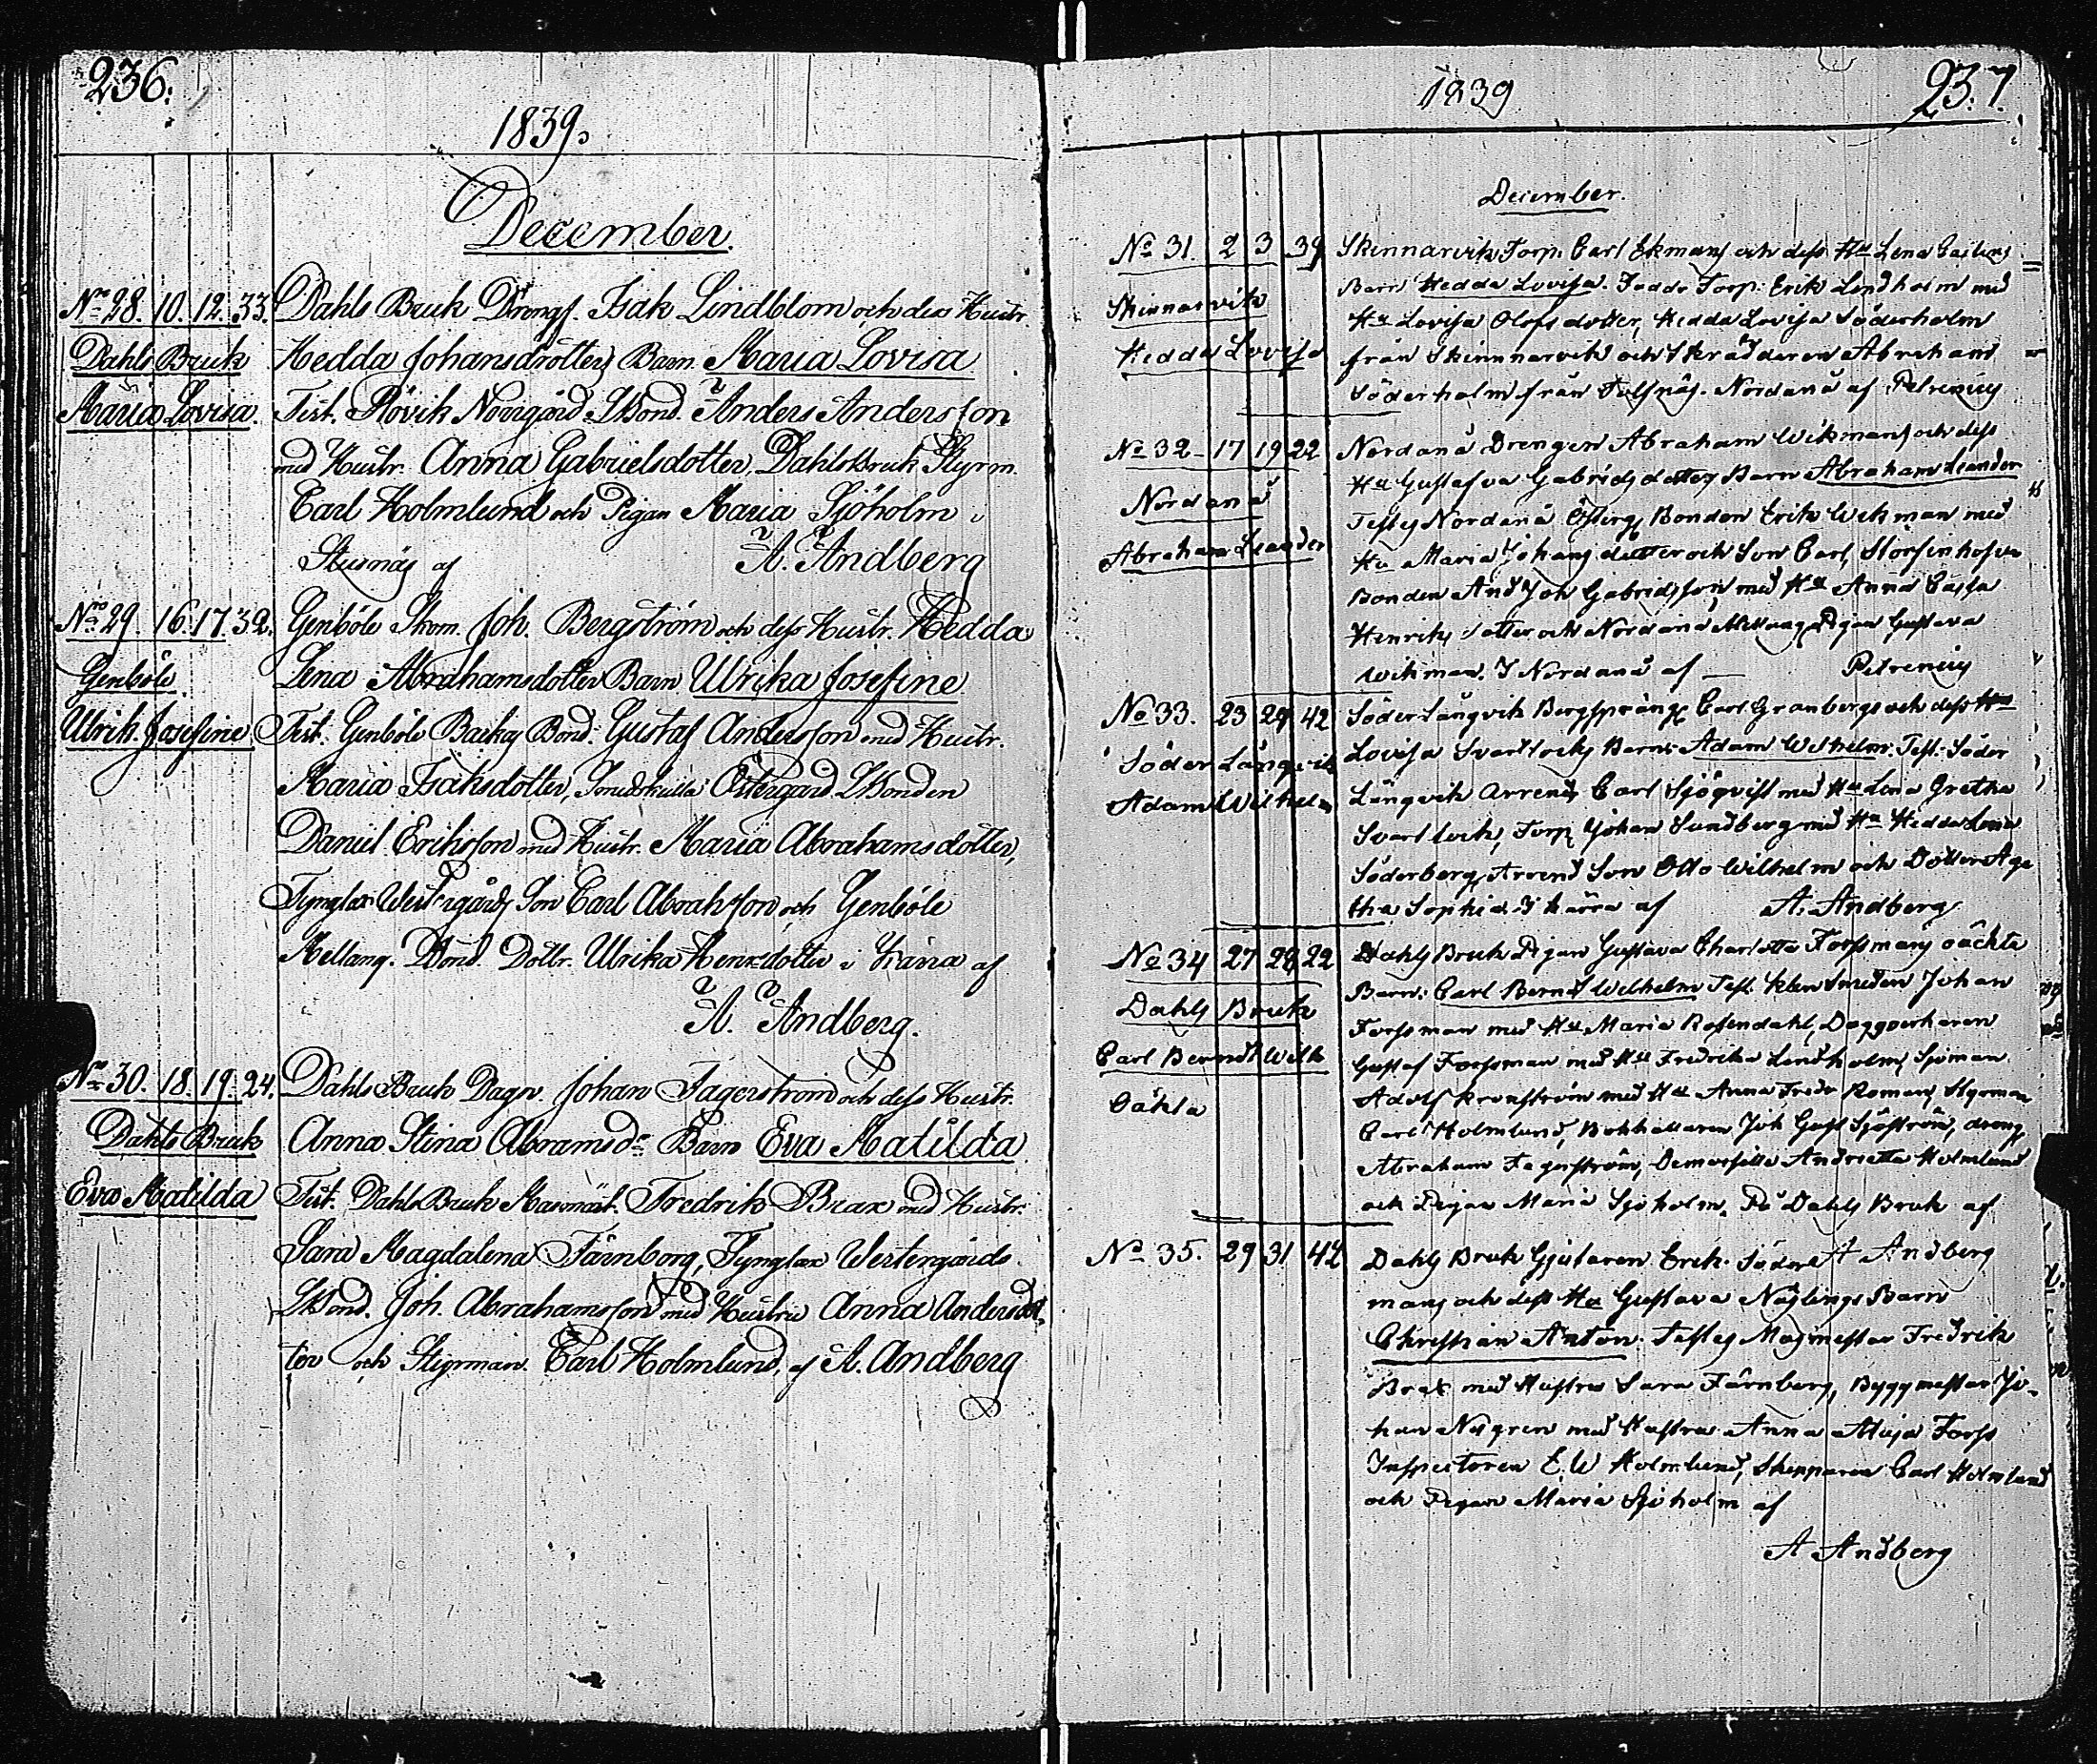 236.
1839.
December.
No 28. 10. 12. 33. Dahls Bruk Drengs. Isak Lindblom och dess Hustr.
Dahls Bruk Hedda Johansdotters Barn Maria Lovisa
Maria Lovisa. Test. Rövik Norrgård SBond. Anders Andersson
med Hustr. Anna Gabrielsdotter, Dahls Bruk Styrm.
Carl Holmlund och Pigan Maria Sjöholm i
af A. Andberg
No 29. 16. 17. 32. Genböle Skom. Joh. Bergström och dess Hustr. Hedda
Genböle Lena Abrahamsdotters Barn Ulrika Josefine
Ulrik. Josefine Test. Genböle Backas Bond. Gustaf Andersson med Hustr.
Maria Isaksdotter, Östergård SBonden
Daniel Eriksson med Hustr. Maria Abrahamsdotter,
Tynglax Westergårds Son Carl Abrahsson och Genböle
Mellang. Bond. Dottr. Ulrika Henriksdotter i af
A. Andberg.
No 30. 18. 19. 24. Dahls Bruk Dagsv. Johan Fagerström och dess Hustr.
Dahls Bruk Anna Stina Abramsdr Barn Eva Matilda
Eva Matilda Test. Dahls Bruk Masmäst. Fredrik Brax med Hustr.
Sara Magdalena Färnborg, Tynglax Westergårds
SBond. Joh. Abrahamsson med Hustru Anna Andersdot-
ter och Styrman Carl Holmlund, af A. Andberg
1839
237.
December.
No 31. 2 3 39 Skinnarvik Torp. Carl Ekmans och dess Hu Lena Cajsas
Skinnarvik Barn Hedda Lovisa. Faddr Torp. Erik Lindholm med
Hedda Lovisa Hu Lovisa Olofsdotter, Hedda Lovisa Söderholm
från Skinnnarvik och Skrädderen Abraham
Söderholm från Nordanå af Petrenius
No 32 17 19 22 Nordanå Drengen Abraham Wikmans och dess
Nordanå Hu Gustafva Gabrielsdotters Barn Abraham Leander
Abraham Leander Testes Nordanå Östergs Bonden Erik Wikman med
Hu Maria Johansdotter och Son Carl, Storfinhofva
Bonden And Joh Gabrielsson med Hu Anna Cajsa
Henriksdotter och Nordanå Mellang Pigan Gustava
Wikman. I Nordanå af Petrenius
No 33. 23 29 42 Söder Långvik Bergsspräng Carl Granbergs och dess Hu
Söder Långvik Lovisa Svartlocks Barn: Adam Wilhelm. Test. Söder
Adam Wilhelm Långvik Arrend Carl Sjöqvist med Hu Lena Gretha
Svartlock, Torp Johan Sundberg med Hu Hedda Lena
Söderberg, Arrend Son Otto Wilhelm och Dotter Aga
tha Sophia. I kärra af A. Andberg
No 34 27 28 22 Dahls Bruk Pigan Gustava Charlotta Forssmans oächta
Dahls Bruk Barn: Carl Bernd Wilhelm Test. Klensmeden Johan
Carl Berndt Wilh Forssman med Hu Maria Rosendahl, Daggverkaren
Oäkta Gustaf Forssman med Hu Fredrika Lindholm, Sjöman
Adolf Kronström med Hu Anna Fredr Roman, Styrman
Carl Holmlund, Bokhållaren Joh Gust Sjöström, dreng
Abraham Fagerström, Demoiselle Andrietta Holmlund
och Pigan Maria Sjöholm. På Dahls Bruk af
A Andberg
No 35. 29 31 42 Dahls Bruk Gjutaren Erik Söder
mans och dess Hu Gustava Näslings Barn
Christian Anton. Testes Masmestar Fredrik
Brax med Hustru Sara Färnberg, Byggmestar Jo-
han Nygren med Hustru Anna Maja Forss
Inspectoren E W Holmlund, Skepparen Carl Holmlund
och Pigan Maria Sjöholm af
A Andberg